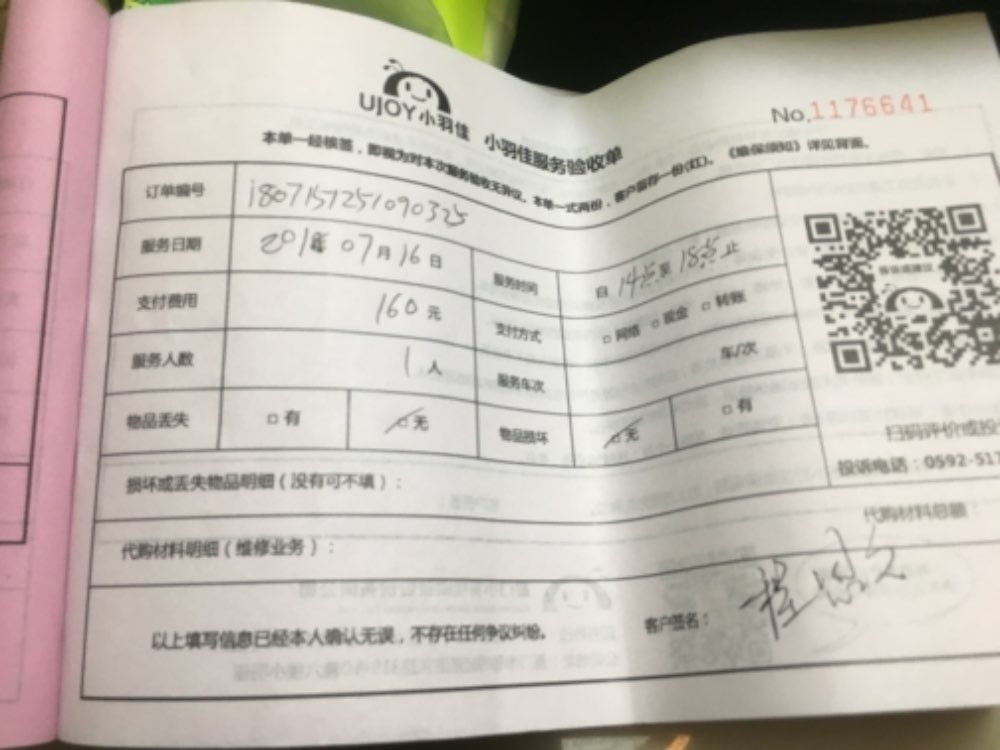 UJOY小羽佳 小羽佳服务验收单
No.1176641
本单一经核签，即视为对本次服务验收无异议。本单一式两份，客户留存一份(红)。《维保须知》详见背面。
订单编号 1807157251090325
服务日期 2018年07月16日 服务时间 自14点至18点止
支付费用 160元 支付方式 □网络 □现金 □转账
服务人数 1人 服务车次 车/次
物品丢失 □有 □无 物品损坏 □无 □有
扫码评价或投
投诉电话：0592-517
损坏或丢失物品明细（没有可不填）：
代购材料总额：
代购材料明细（维修业务）：
以上填写信息已经本人确认无误，不存在任何争议纠纷。 客户签名：